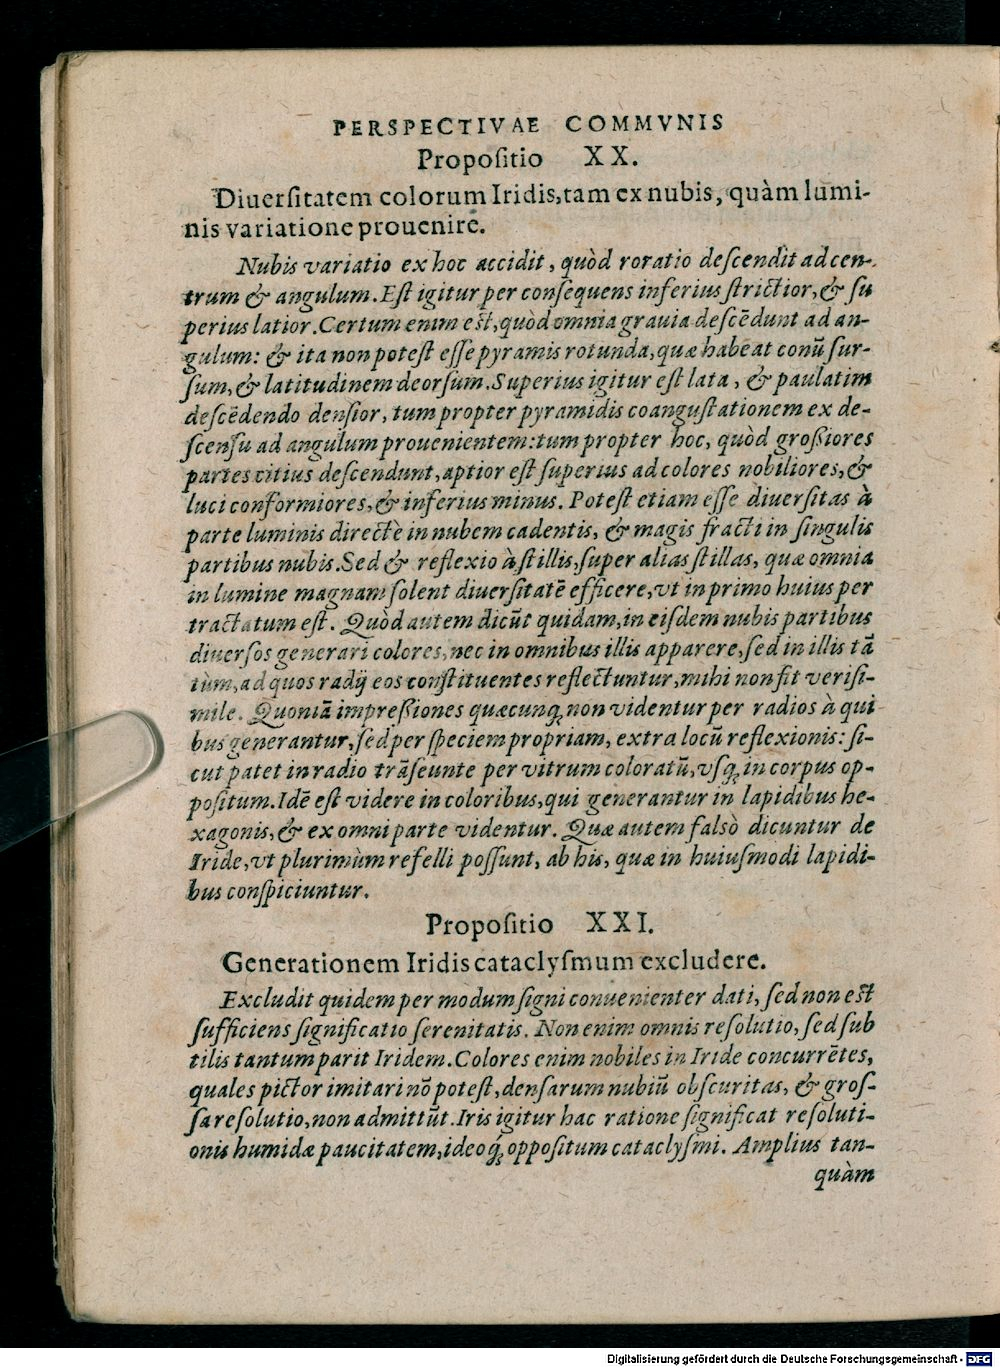 PERSPECTIVAE COMMVNIS
Propoſitio XX.
Diuerſitatem colorum Iridis, tam ex nubis, quàm lumi-
nis variatione prouenire.
Nubis variatio ex hoc accidit, quòd roratio deſcendit ad cen-
trum & angulum. Eſt igitur per conſequens inferius ſtrictior, & ſu
perius latior. Certum enim eſt, quòd omnia grauia deſcēdunt ad an-
gulum: & ita non poteſt eſſe pyramis rotunda, quæ habeat conū ſur-
ſum, & latitudinem deorſum. Superius igitur eſt lata, & paulatim
deſcēdendo denſior, tum propter pyramidis coanguſtationem ex de-
ſcenſu ad angulum prouenientem: tum propter hoc, quòd großiores
partes citius deſcendunt, aptior eſt ſuperius ad colores nobiliores, &
luci conformiores, & inferius minus. Poteſt etiam eſſe diuerſitas à
parte luminis directè in nubem cadentis, & magis fracti in ſingulis
partibus nubis. Sed & reflexio à ſtillis, ſuper alias ſtillas, quæ omnia
in lumine magnam ſolent diuerſitatē efficere, vt in primo huius per
tractatum eſt. Quòd autem dicūt quidam, in eiſdem nubis partibus
diuerſos generari colores, nec in omnibus illis apparere, ſed in illis tā
tùm, ad quos radij eos conſtituentes reflectuntur, mihi non fit veriſi-
mile. Quoniā impreßiones quæcunq́; non videntur per radios à qui
bus generantur, ſed per ſpeciem propriam, extra locū reflexionis: ſi-
cut patet in radio trāſeunte per vitrum coloratū, vſq́; in corpus op-
poſitum. Idē eſt videre in coloribus, qui generantur in lapidibus he-
xagonis, & ex omni parte videntur. Quæ autem falsò dicuntur de
Iride, vt plurimùm refelli poſſunt, ab his, quæ in huiuſmodi lapidi-
bus conſpiciuntur.
Propoſitio XXI.
Generationem Iridis cataclyſmum excludere.
Excludit quidem per modum ſigni conuenienter dati, ſed non eſt
ſufficiens ſignificatio ſerenitatis. Non enim omnis reſolutio, ſed ſub
tilis tantum parit Iridem. Colores enim nobiles in Iride concurrētes,
quales pictor imitari nō poteſt, denſarum nubiū obſcuritas, & groſ-
ſa reſolutio, non admittūt. Iris igitur hac ratione ſignificat reſoluti-
onis humidæ paucitatem, ideoq́; oppoſitum cataclyſmi. Amplius tan-
quàm
Digitalisierung gefördert durch die Deutsche Forschungsgemeinschaft - DFG